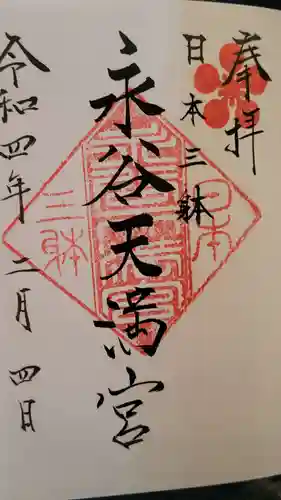 奉拝
日本三躰
永谷天満宮
日本
三躰
令和四年二月四日